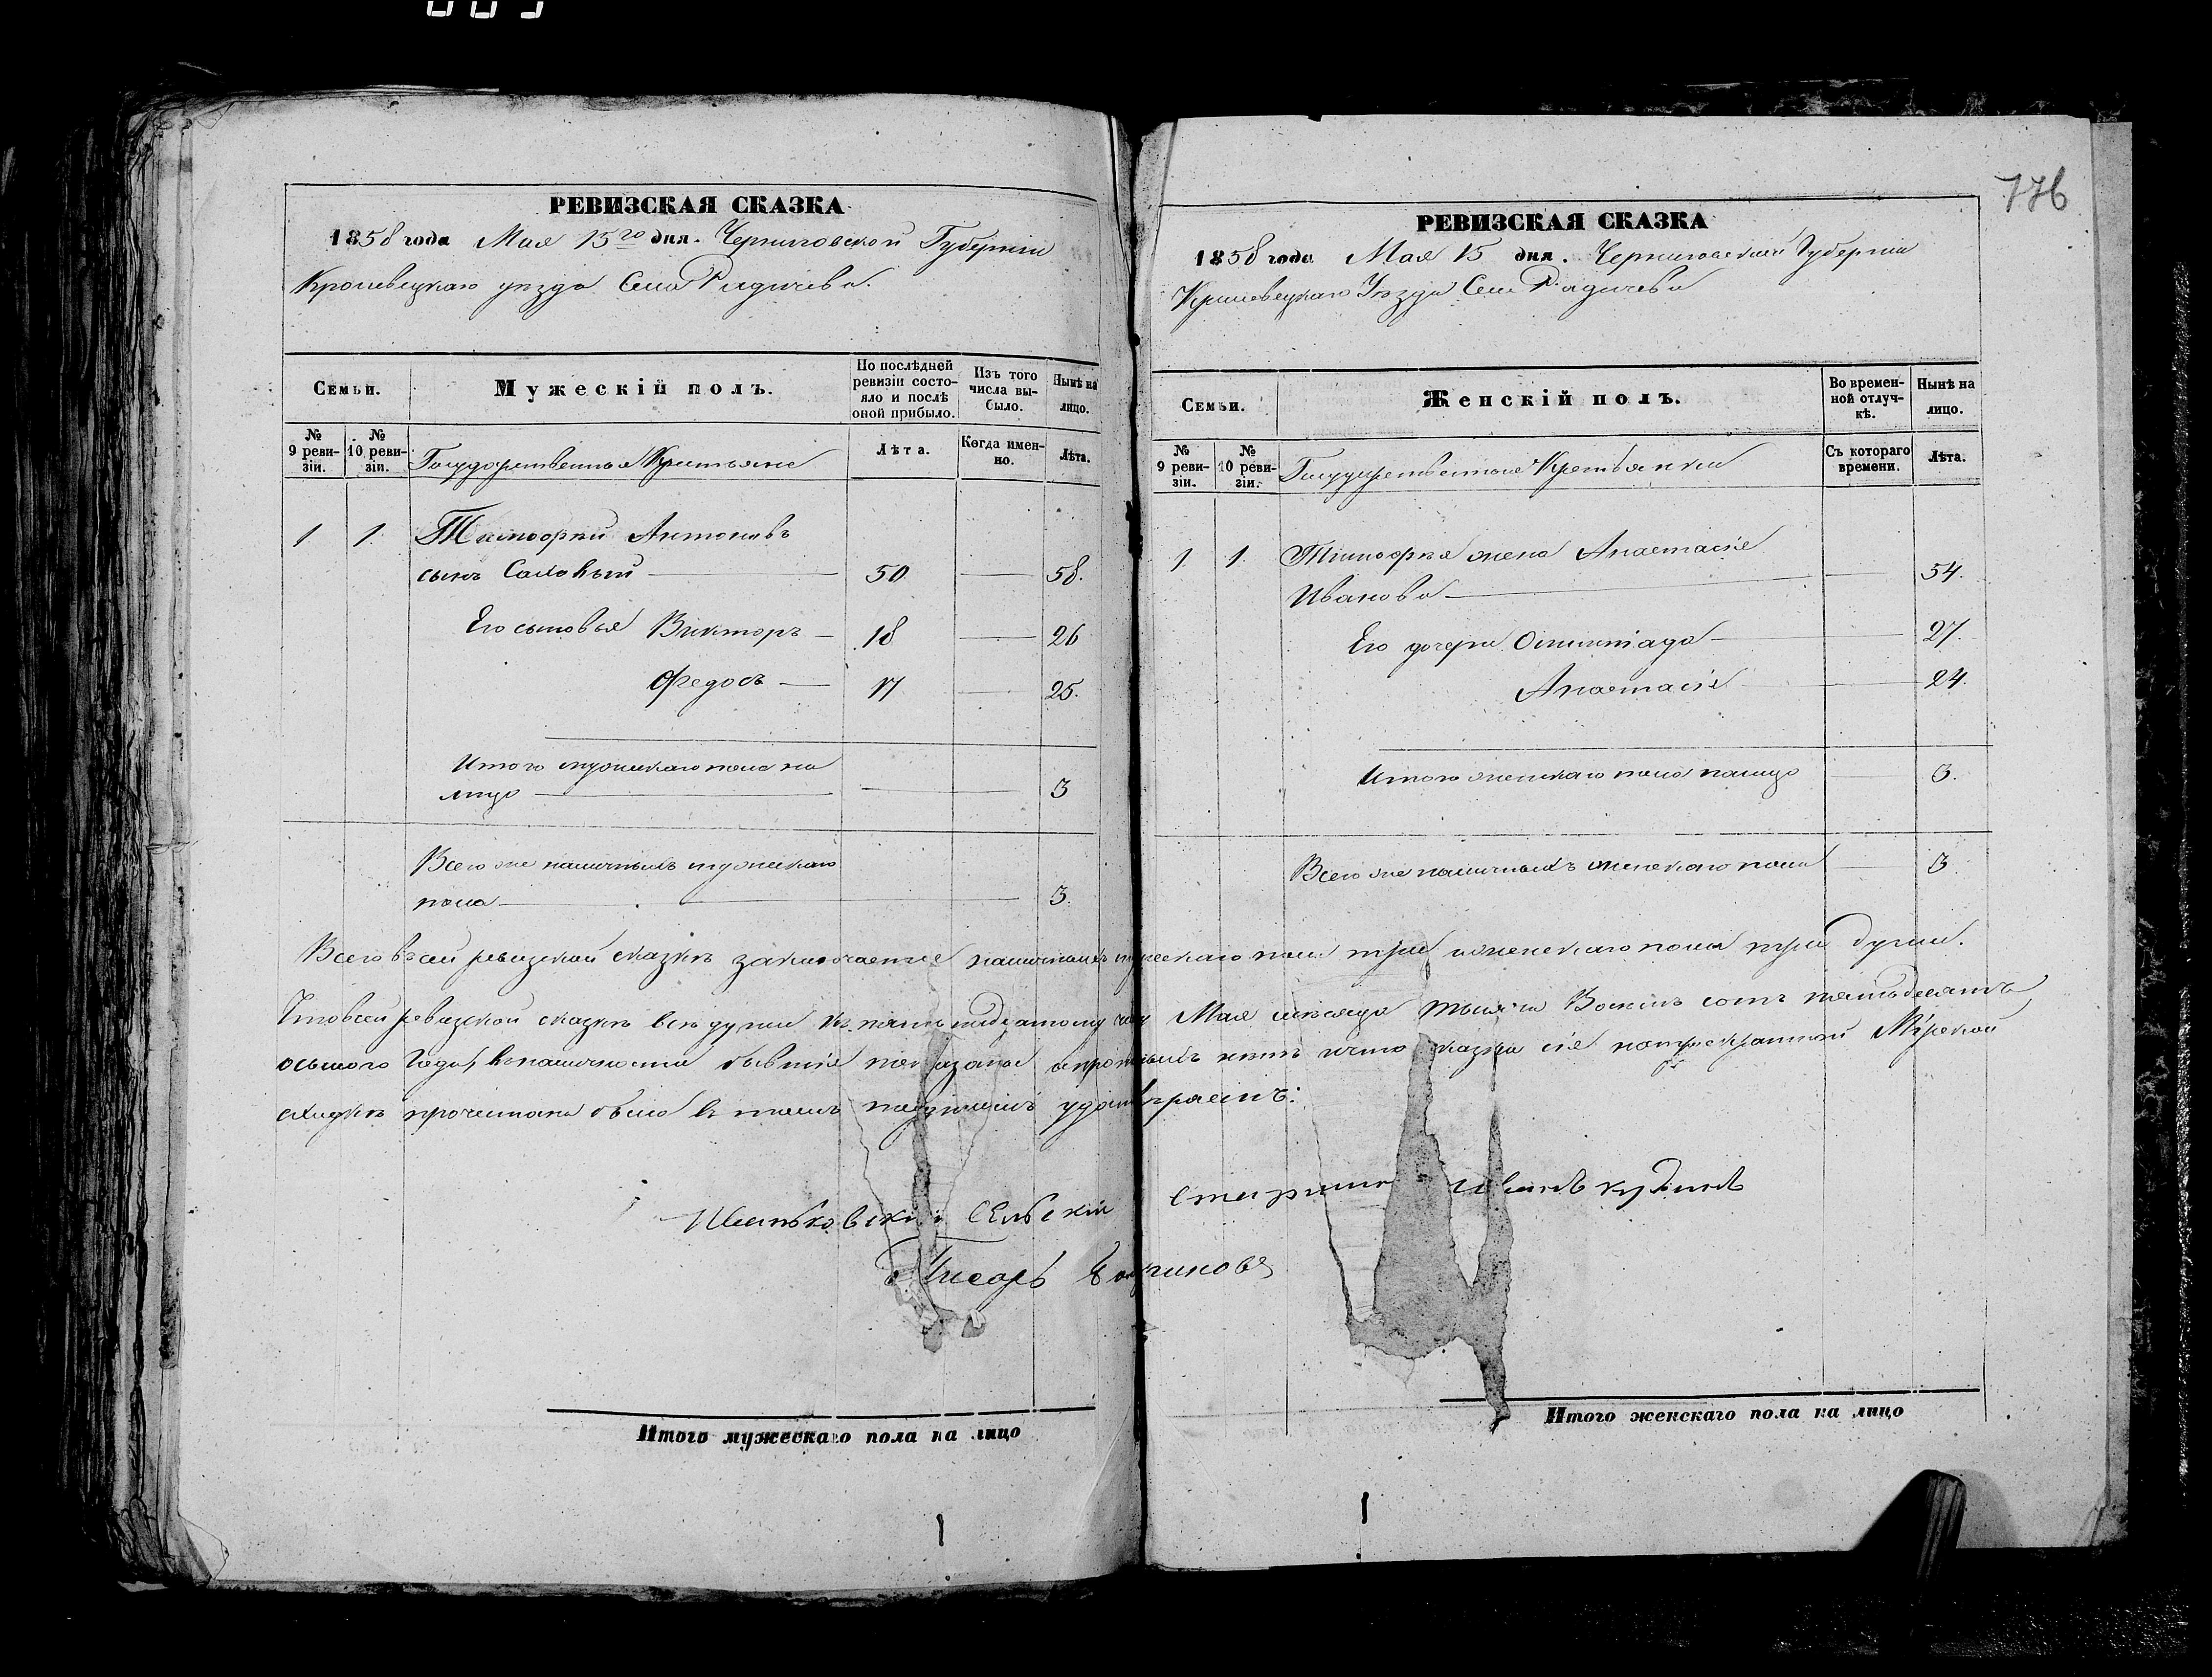 776
РЕВИЗСКАЯ СКАЗКА
1858 года Мая 15го дня. Черниговской Губерніи
Кролевецкаго уезда Села Радичева.
Семьи.
Мужескій полъ.
По послѣдней ревизіи состояло и послѣ оной прибыло.
Изъ того числа выбыло.
Нынѣ на лицо.
№ 9 ревизіи.
№ 10 ревизіи.
Государственныя Крестьяне
Лѣта.
Когда именно.
Лѣта.
1 1 Тимофей Антоновъ
сынъ 50 58.
Его сыновья Викторъ 18 26
Федосъ 17 25.
Итого мужескаго пола на
лицо 3
Всего же наличныхъ мужескаго
пола 3.
РЕВИЗСКАЯ СКАЗКА
1858 года Мая 15 дня. Черниговской Губерніи
Кролевецкаго Уезда Села Радичева
Семьи.
Женскій полъ.
Во временной отлучкѣ.
Нынѣ на лицо.
№ 9 ревизіи.
№ 10 ревизіи.
Государственныя Крестьянки
Съ котораго времени.
Лѣта.
1 1 Тимофея жена Анастасія
Иванова 54.
Его дочери 27.
Анастасія 24.
Итого женскаго пола налицо 3.
Всего же наличныхъ женскаго пола 3.
Всего въ сей ревизской сказкѣ заключается наличныхъ мужескаго пола три и женскаго пола три души.
Что в сей ревизской сказкѣ всѣ души къ пятнадцатому числу Мая мѣсяца тысяча Восемь сотъ пятьдесятъ
осьмого Года, въ наличности бывшіе показаны и нетъ и что сказка сія Мірской
сходкѣ прочитана была в томъ
Сельскій Старшина Иванъ
Писарь
Итого мужескаго пола на лицо
Итого женскаго пола на лицо